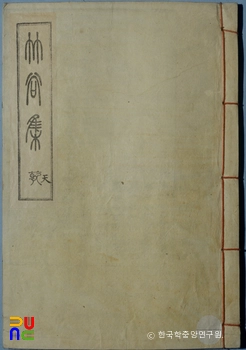 竹谷集
天
© 한국학중앙연구원